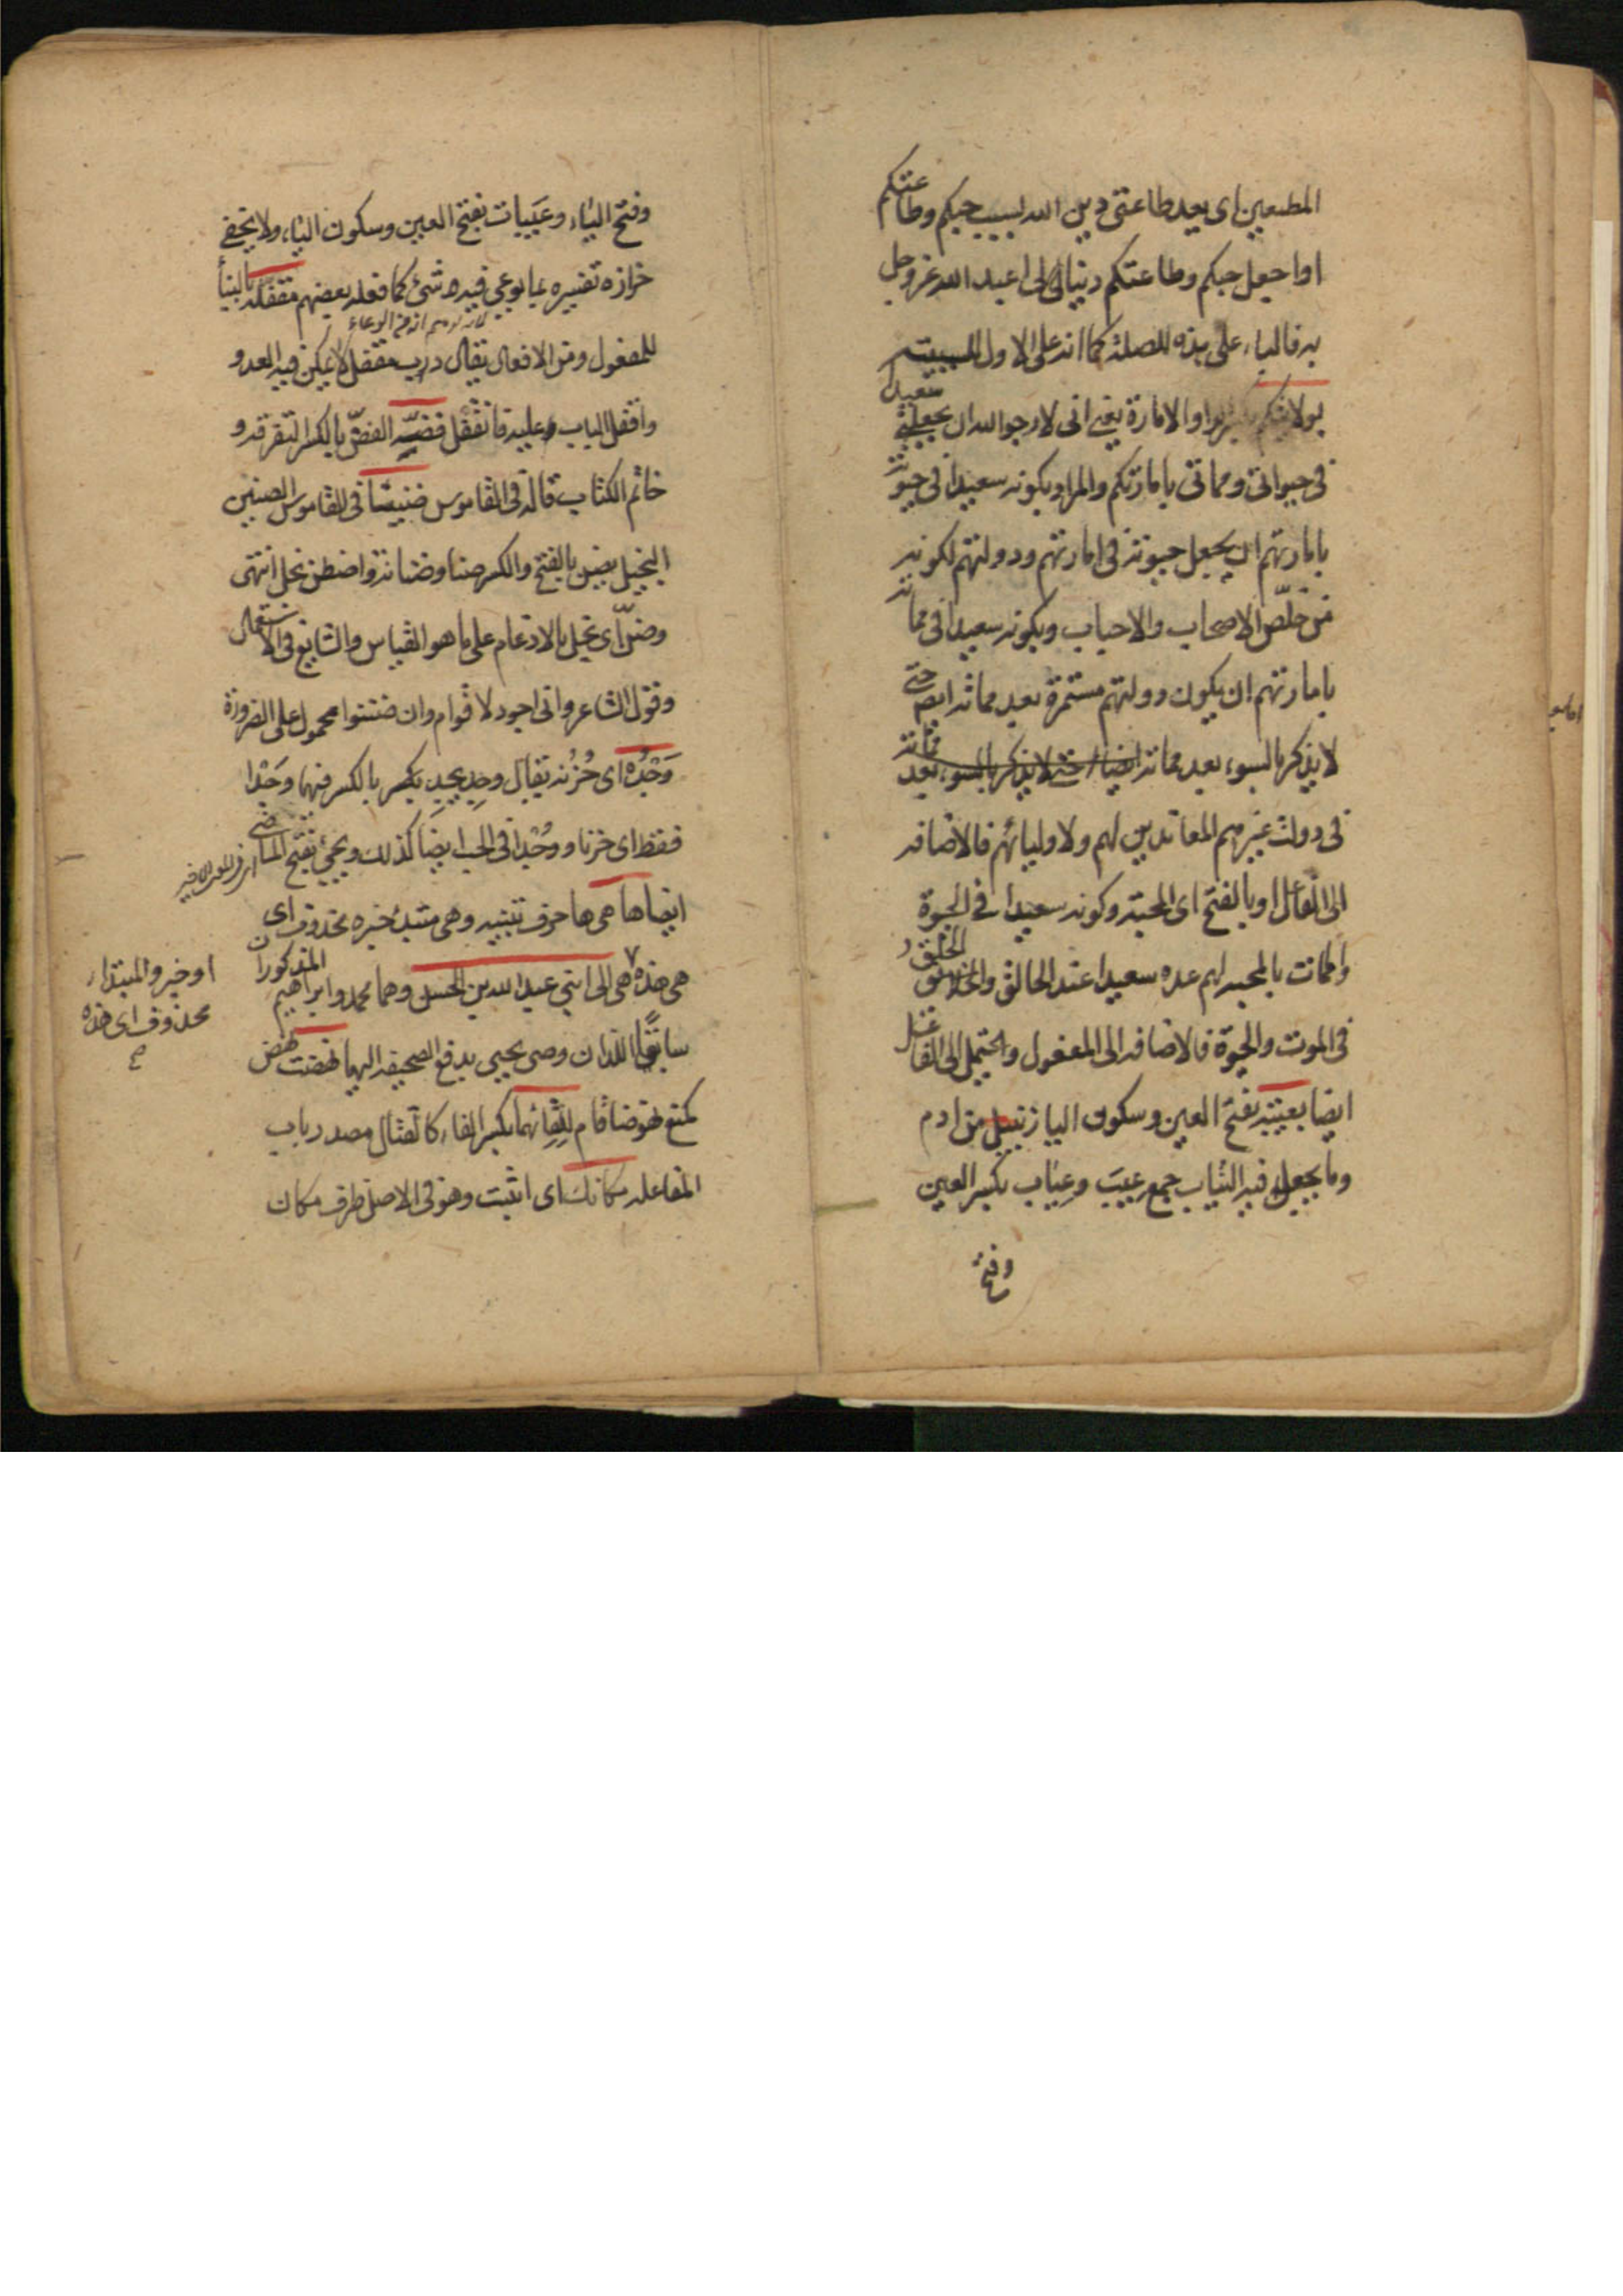 المطيعين اى بعد طاعتى دين الله بسبب حبكم وطاعتكم
او اجعل حبكم وطاعتكم دينا لى اعبد الله عز وجل
به فالباء على هذه للصلة كما انه على الاول للسببية
بولايتكم او الامارة يعنى انى لارجو الله ان يجعلنى سعيدا
فى حيوتى ومماتى بامارتكم والمراد بكونه سعيدا فى حيوته
بامارتهم ان يجعل حيوته فى امارتهم ودولتهم لكونه
من خلّص الاصحاب والاحباب وبكونه سعيدا فى مماته
بامارتهم ان يكون دولتهم مستمرة بعد مماته ايضا حتى
لا يذكر بالسوء بعد مماته ايضا حتى لا يذكر بالسوء بعد مماته
فى دولت غيرهم المعاندين لهم ولاوليائهم فالاضافه
الى الفاعل او بالفتح اى المحبة وكونه سعيدا فى الحيوة
والممات بالمحبه لهم عده سعيدا عند الخالق والخلق
فى الموت والحيوة فالاضافه الى المفعول ويحتمل الى الفاعل
ايضا بعيبة بفتح العين وسكون اليا زنبيل من ادم
وما يجعل فيه الثياب جمع عيب وعياب بكسر العين
وفتح
وفتح الياء وعيبات بفتح العين وسكون الياء ولا يخفى
خزازه تفسيره بما يوعى فيه شئ كما فعله بعضهم مقفله بالبنأ
للمفعول ومن الافعال يقال درب مقفل لا يمكن فيه العدو
واقفل الباب وعليه فانقفل فضّه الفضّ بالكسر التفرقه و
خاتم الكتاب قاله فى القاموس ضنينا فى القاموس الضنين
البخيل يضن بالفتح والكسر ضنا وضنانة واضطن بخل انتهى
وضنّ اى بخل بالادغام على ما هو القياس والشايع فى الاستعمال
وقول الشاعر وانى اجود لاقوام وان ضننوا محمول على الضرورة
وَجْدُه اى حُزنه يقال وجِد يجد بكسر بالكسر فيهما وَجْدا
فقط اى حزنا ووُجْدا فى الحب ايضا كذلك ويجئ بفتح الماضى
ايضا ها هى ها حرف تنبيه وهى مبتدأ خبره محذوف اى
هى هذه هى الى ابنى عبد الله بن الحسن وهما محمد وابراهيم المذكوران
سابقا اللذان وصى يحيى بدفع الصحيفه اليهما نهضت نهض
كمنع نهوضا قام للقائهما بكسر الفاء كالقتال مصدر باب
المفاعله مكانك اى اثبت وهو فى الاصل ظرف مكان
او خبر والمبتداء
محذوف اى هذه